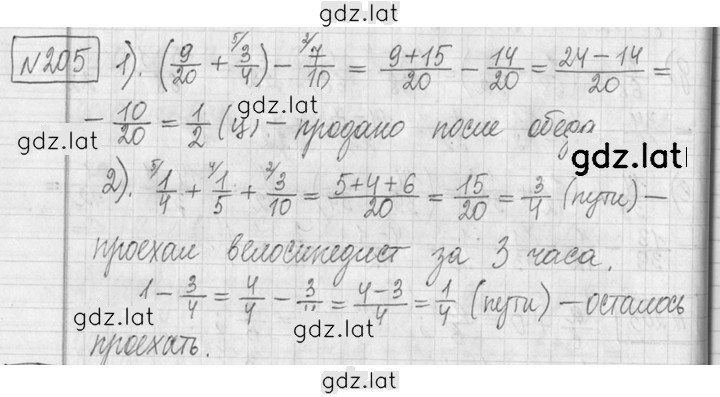 gdz.lat
№205 1). (9/20 + 5/3/4) − 2/7/10 = 9+15/20 − 14/20 = 24−14/20 =
− 10/20 = 1/2 (ц) – продано после обеда
gdz.lat
gdz.lat
gdz.lat
2). 5/1/4 + 4/1/5 + 2/3/10 = 5+4+6/20 = 15/20 = 3/4 (пути) –
проехал велосипедист за 3 часа.
1 − 3/4 = 4/4 − 3/4 = 4−3/4 = 1/4 (пути) – осталось
gdz.lat
gdz.lat
проехать.
gdz.lat